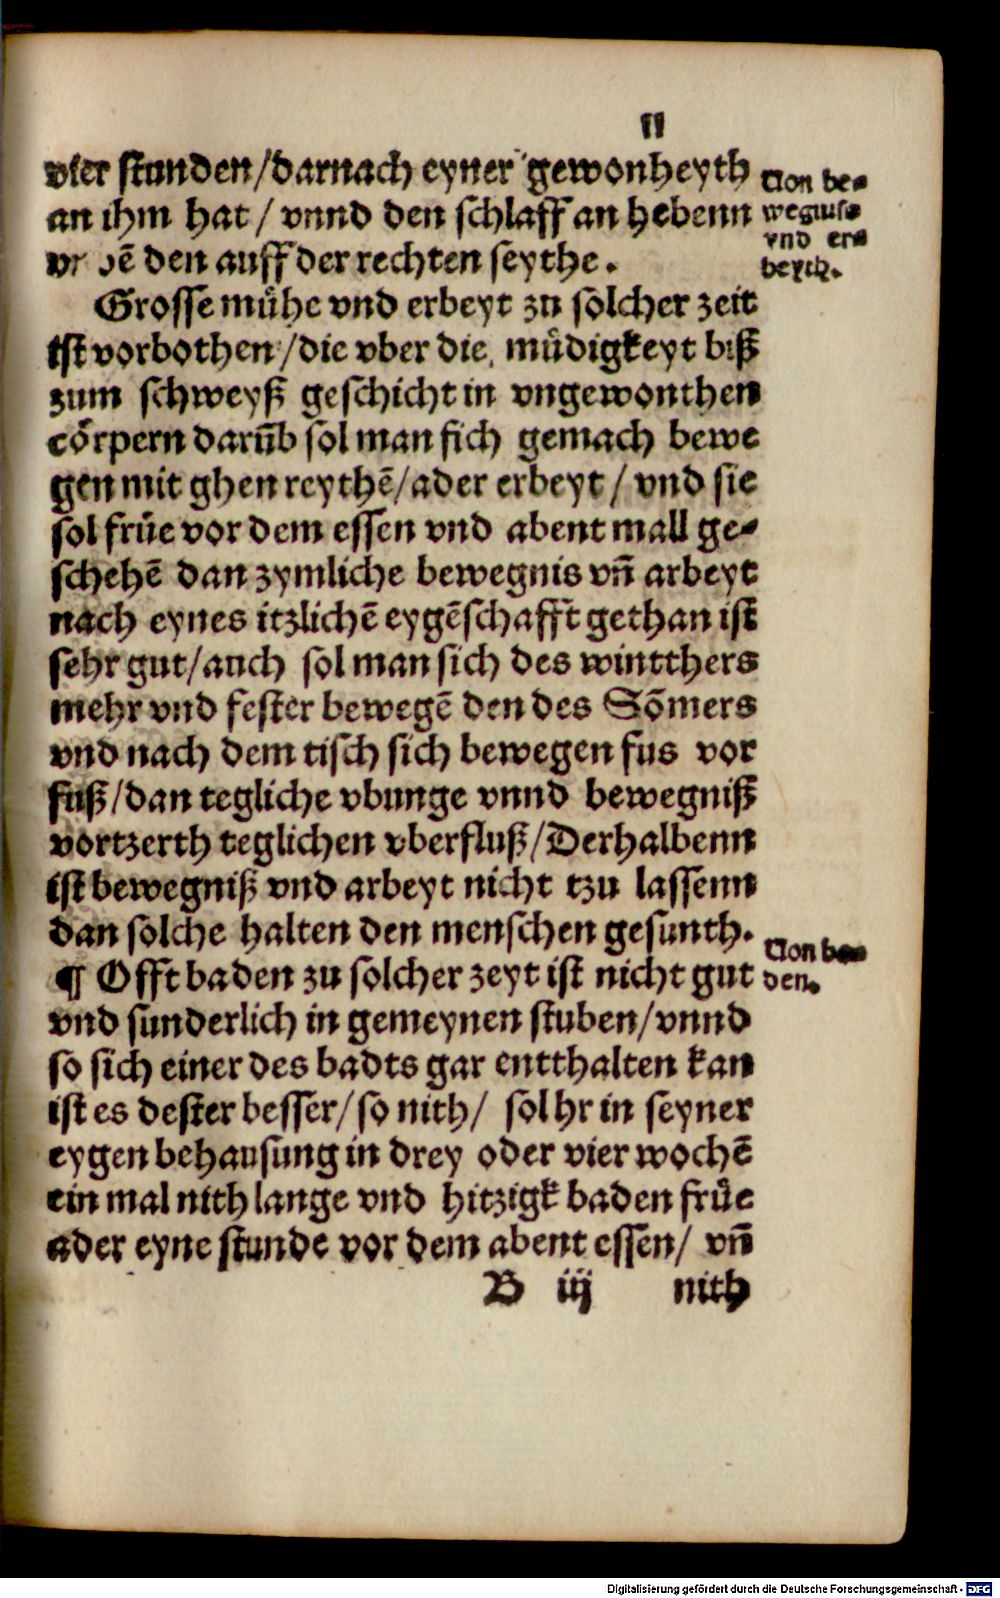 11
vier stunden/darnach eyner gewonheyth
an ihm hat / vnnd den schlaff an hebenn
den auff der rechten seythe.
Von be-
wegnis
vnd er-
beyth.
Grosse mühe vnd erbeyt zu solcher zeit
ist vorbothen/die vber die müdigkeyt biß
zum schweyß geschicht in vngewonthen
cörpern darüb sol man sich gemach bewe
gen mit ghen reythē/ader erbeyt / vnd sie
sol früe vor dem essen vnd abent mall ge-
schehē dan zymliche bewegnis vñ arbeyt
nach eynes itzlichē eygēschafft gethan ist
sehr gut/auch sol man sich des wintthers
mehr vnd fester bewegē den des Sõmers
vnd nach dem tisch sich bewegen fus vor
fuß/dan tegliche vbunge vnnd bewegniß
vortzerth teglichen vberfluß/Derhalbenn
ist bewegniß vnd arbeyt nicht tzu lassenn
dan solche halten den menschen gesunth.
¶ Offt baden zu solcher zeyt ist nicht gut
Von ba-
den.
vnd sunderlich in gemeynen stuben/vnnd
so sich einer des badts gar entthalten kan
ist es dester besser/so nith/ sol hr in seyner
eygen behausung in drey oder vier wochē
ein mal nith lange vnd hitzigk baden früe
ader eyne stunde vor dem abent essen/ vñ
B iij nith
Digitalisierung gefördert durch die Deutsche Forschungsgemeinschaft - DFG